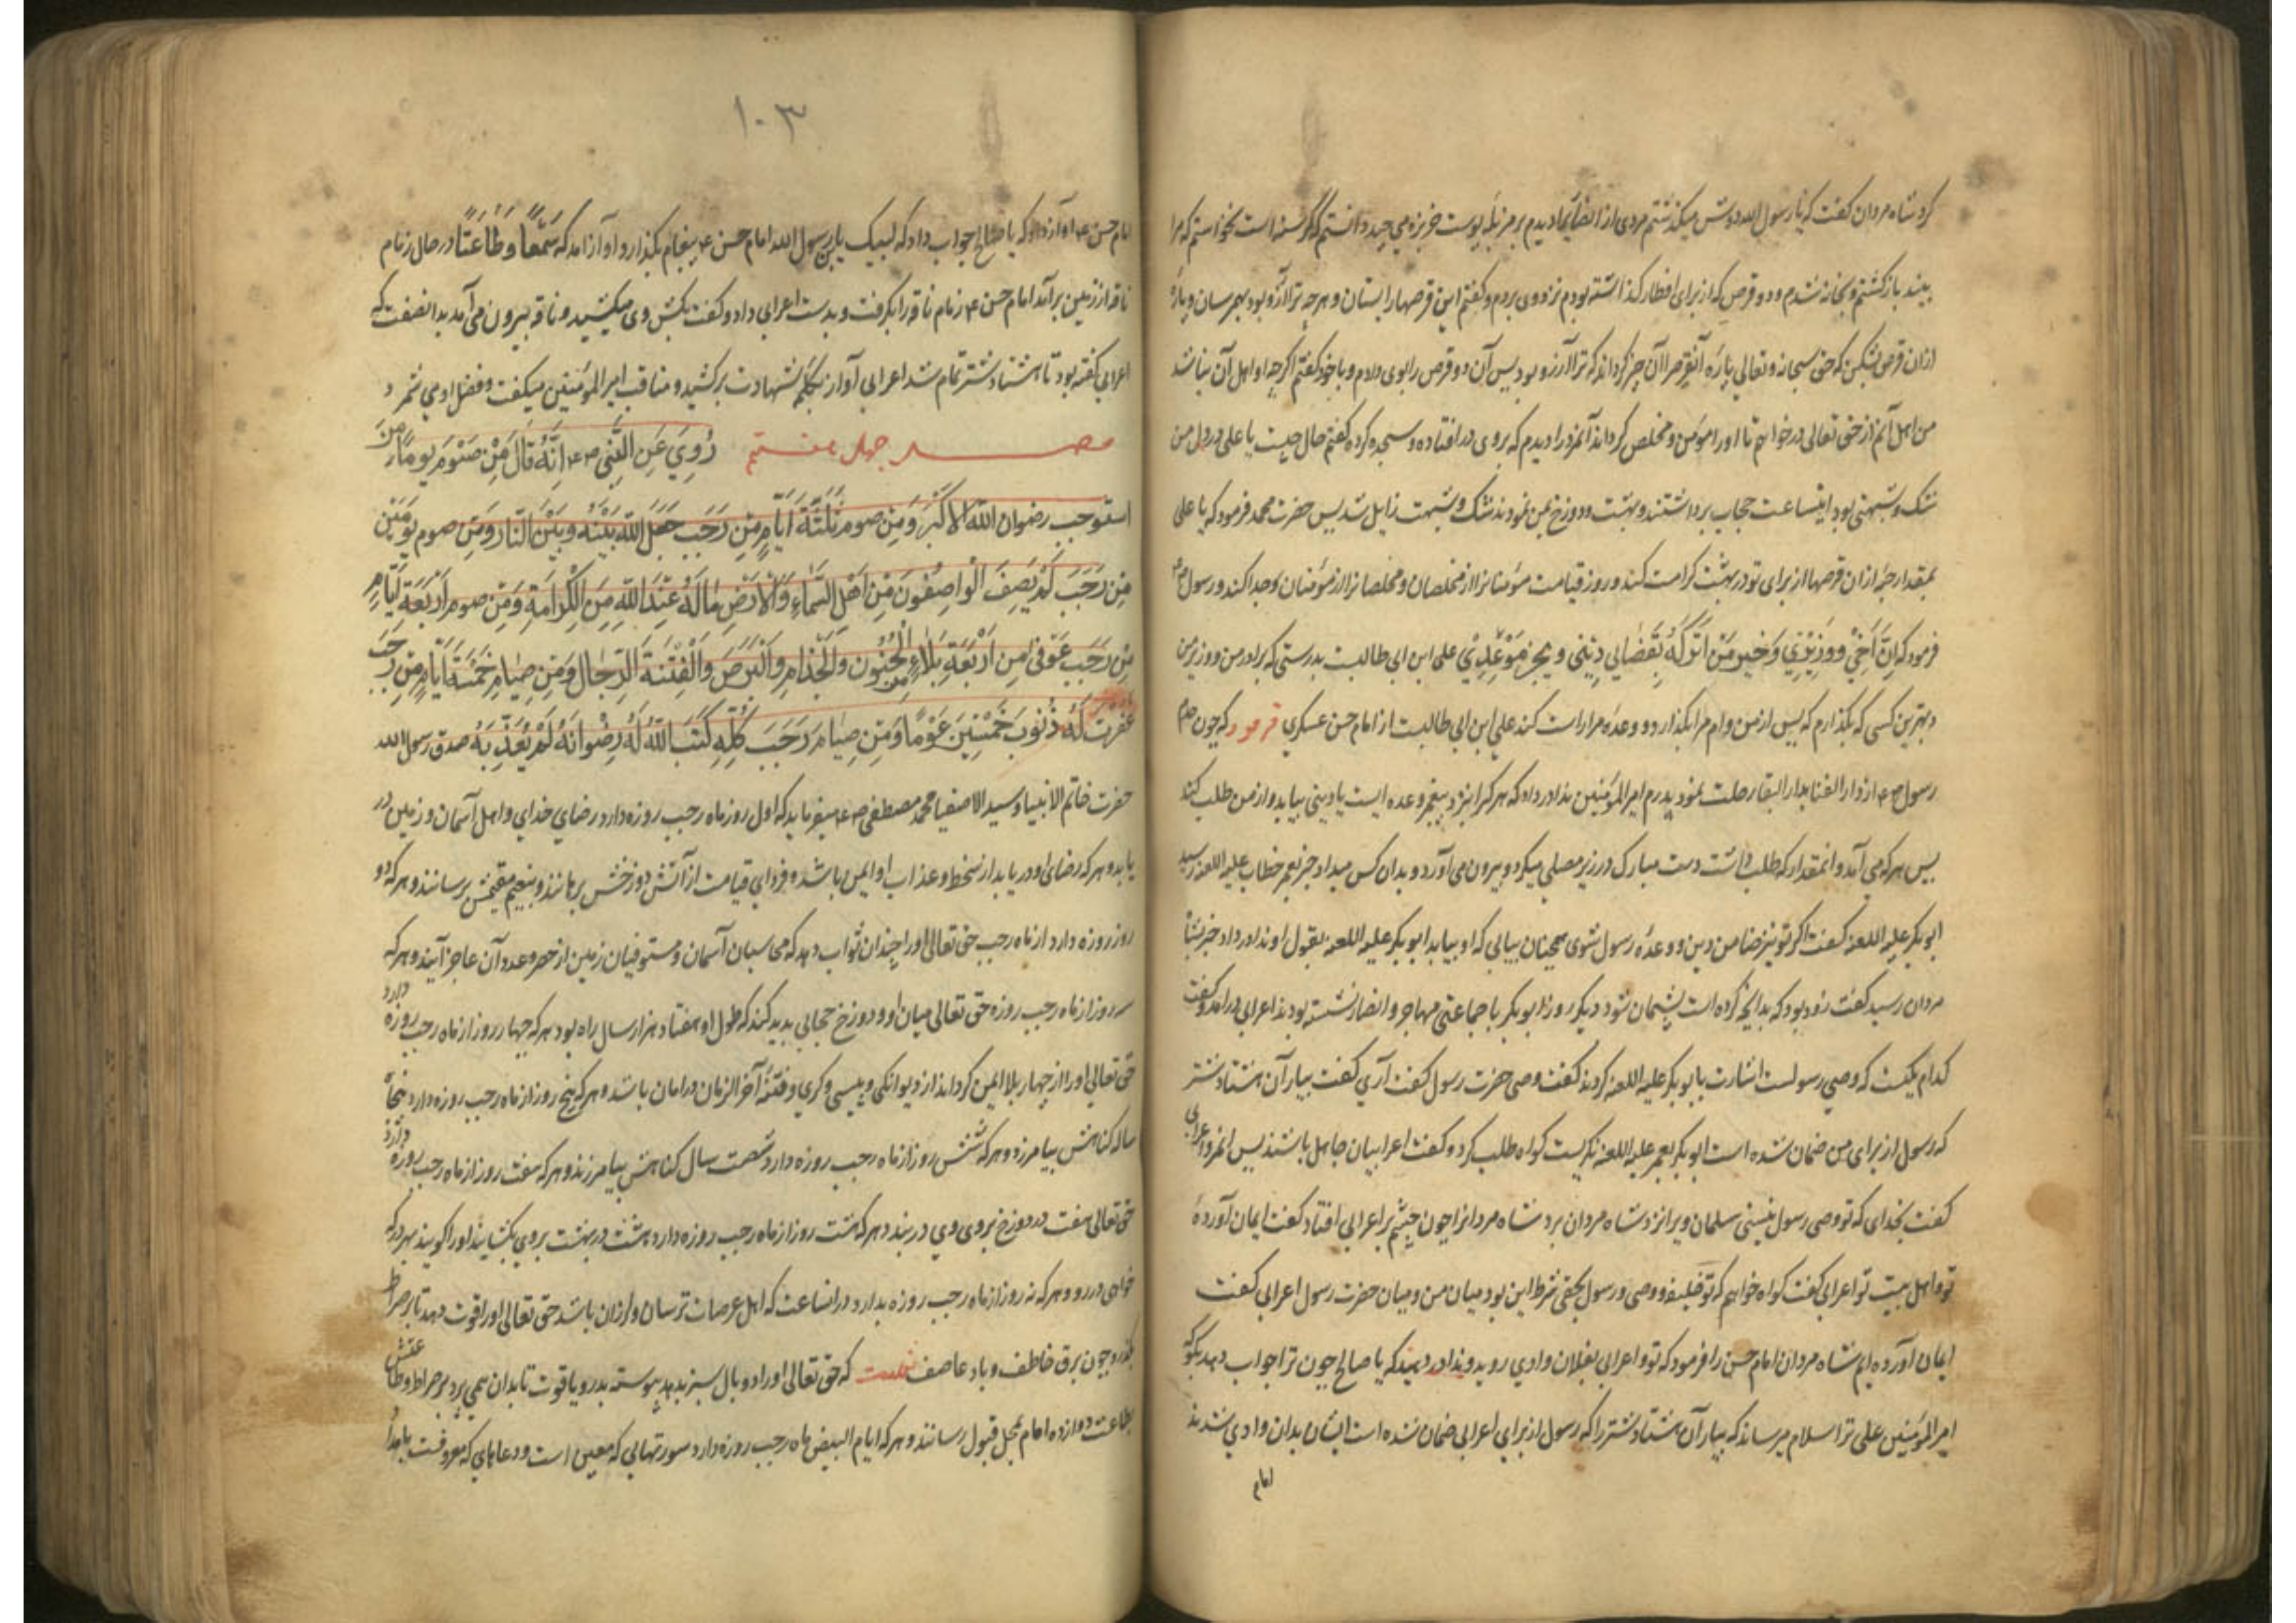 کرد شاه مردان کفت که یا رسول الله دوش میکذشتم مردی از انصار دیدم بر مزبله پوست خربزه می چید دانستم که کرسنه است نخواستم که مرا
بیند باز کشتم و بخانه شدم و دو قرص که از برای افطار کذاشته بودم نزد وی بردم و کفتم این قرصها را بستان و هر چه ترا آرزو بود بهر سان و پاره
ازان قرص بشکن که حق سبحانه و تعالی پاره آنقرص را آن چیز کرداند که ترا آرزو بود پس آن دو قرص را بوی دادم و با خود کفتم اکر چه او اهل آن نباشد
من اهل آنم از حق تعالی درخواستم تا او را مؤمن و مخلص کرداند آنمرد را دیدم که بروی در افتاده و سجده کرده کفتم حال چیست یا علی در دل من
شک و شبهتی بود اینساعت حجاب برداشتند و بهشت و دوزخ بمن نمودند شک و شبهت زایل شد پس حضرت محمد فرمود که یا علی
بمقدار جزء ازان قرصها از برای تو در بهشت کرامت کند و روز قیامت مؤمنانرا از مخلصان و مخلصانرا از مؤمنان جدا کند و رسول ص
فرمود که اِنَّ اَخِیْ وَوَزِیْرِیْ وَخَیْرَ مَنْ اَتْرُکُهُ یَقْضِی دِیْنِی وَیُنْجِزُ مَوْعِدِیْ علی ابن ابی طالبت بدرستی که برادر من و وزیر من
و بهترین کسی که بکذارم که پس از من وام مرا بکذارد و وعده مرا راست کند علی ابن ابی طالبت از امام حسن عسکری فرمود که چون
رسول ص از دار الفنا بدار البقا رحلت نمود پدرم امیر المؤمنین ندا در داد که هر کرا نزد پیغمبر وعده ایست یا دینی بیاید و از من طلب کند
پس هر که می آمد و آنمقدار که طلب داشت دست مبارک در زیر مصلی میکرد و بیرون می آورد و بدان کس میداد خبر بعمر خطاب علیه اللعنه رسید
ابو بکر علیه اللعنه کفت اکر تو نیز ضامن دین و وعده رسول شوی همچنان بیابی که او بیابد ابو بکر علیه اللعنه بقول او ندا در داد خبر بشاه
مردان رسید کفت زود بود که بدانچه کرده است پشیمان شود دیکر روز ابو بکر با جماعتی مهاجر و انصار نشسته بودند اعرابی در آمد و کفت
کدام یکیت که وصی رسولست اشارت بابو بکر علیه اللعنه کردند کفت وصی حضرت رسول کفت آری کفت بیار آن هشتاد شتر
که رسول از برای من ضمان شده است ابو بکر بعمر علیه اللعنه نکریست کواه طلب کرد و کفت اعرابیان جاهل باشند پس آنمرد اعرابی
کفت بخدای که تو وصی رسول نیستی سلمان ویرا نزد شاه مردان برد شاه مردانرا چون چشم بر اعرابی افتاد کفت ایمان آوردهٔ
تو و اهل بیت تو اعرابی کفت کواه خواهم که تو خلیفه و وصی رسول بحقی شرط این بود میان من و میان حضرت رسول اعرابی کفت
ایمان آورده ایم شاه مردان امام حسن را فرمود که تو و اعرابی بفلان وادی روید و ندا در دهید که یا صالح چون ترا جواب دهد بکو که
امیر المؤمنین علی ترا سلام میرساند که بیار آن هشتاد شتر را که رسول از برای اعرابی ضمان شده است ایشان بدان وادی شدند
امام
۱۰۳
امام حسن ع آواز داد که یا صالح جواب داد که لبیک یا بن رسول الله امام حسن ع پیغام بکذارد آواز آمد که سَمْعًا وَطَاعَتًا در حال زمام
ناقه از زمین بر آمد امام حسن ع زمام ناقه را بکرفت و بدست اعرابی داد و کفت بکش وی میکشید و ناقه بیرون می آمد بدانصفت که
اعرابی کفته بود تا هشتاد شتر تمام شد اعرابی آواز بکلمه شهادت بر کشید و مناقب امیر المؤمنین میکفت و فضل او می شمرد
فصل چهل هفتم رُوِیَ عَنِ النَّبِیِّ ص اِنَّهُ قَالَ مَنْ صَوْمَ یَوْمًا مِنَ
استوجب رضوان الله الاکبر وَمِنَ صوم ثَلٰثَةَ اَیَّامٍ مِنْ رَجَبَ جَعَلَ اللهُ بَیْنَهُ وَبَیْنَ النَّار وَمَن صوم یَوْمَیْن
مِن رَجَبَ لَمْ یَصِفَ الْوَاصِفُونَ مِنْ اَهْلِ السَّمَاءِ وَالْاَرْضِ مَا لَهُ عِنْدَ اللهِ مِنَ الْکَرَامَةِ وَمَن صوم اَرْبَعَةَ اَیَّام
مِن رَجَب عَوفِی مِن اَرْبَعَةِ بَلَاءٍ مِن الْجُنُون وَالْجُذَام وَالْبَرَصَ وَالْفِتْنَةَ الدَّجَال وَمَن صِیَام خَمْسَةَ اَیَّامٍ مِن رَجَبَ
غفرت لَهُ ذُنُوبَ خَمْسِیْنَ عَوْمًا وَمَن صِیَامَ رَجَبَ کُلَّهِ کَتَبَ اللهُ لَهُ رِضْوَانَهُ لَمْ یُعَذِّبهُ صدق رسول الله
حضرت خاتم الانبیا و سید الاصفیا محمد مصطفی ص میفرماید که اول روز ماه رجب روزه دارد رضای خدای و اهل آسمان و زمین در
یابد و هر که رضای او دریابد از سخط و عذاب او ایمن باشد و فردای قیامت از آتش دوزخش برهانند و بنعیم مقیمش برسانند و هر که دو
روز روزه دارد از ماه رجب حق تعالی او را چندان ثواب دهد که محاسبان آسمان و مستوفیان زمین از حصر و عدد آن عاجز آیند و هر که
سه روز از ماه رجب روزه حق تعالی میان او و دوزخ حجابی پدید کند که طول او هفتاد هزار سال راه بود هر که چهار روز از ماه رجب روزه دارد
حق تعالی او را از چهار بلا ایمن کرداند از دیوانکی و پیسی و کری و فتنه آخر الزمان در امان باشد و هر که پنج روز از ماه رجب روزه دارد پنجاه
ساله کناهش بیامرزد و هر که شش روز از ماه رجب روزه دارد شصت سال کناهش بیامرزند و هر که هفت روز از ماه رجب روزه دارد
حق تعالی هفت در دوزخ بروی وی در بندد هر که هشت روز از ماه رجب روزه دارد هشت در بهشت بروی بکشایند او را کویند بهر در که
خواهی در رو و هر که نه روز از ماه رجب روزه بدارد در انساعت که اهل عرصات ترسان و لرزان باشند حق تعالی او را قوت دهد تا بر صراط
بکذرد چون برق خاطف و باد عاصف که حق تعالی او را دو بال سبز بدهد پیوسته بدر و یاقوت تا بدان همی پرد بر صراط و طاعتش
بطاعت دوازده امام محل قبول رسانند و هر که ایام البیض ماه رجب روزه دارد سورتهایی که معین است و دعاهایی که معروفست بامداد